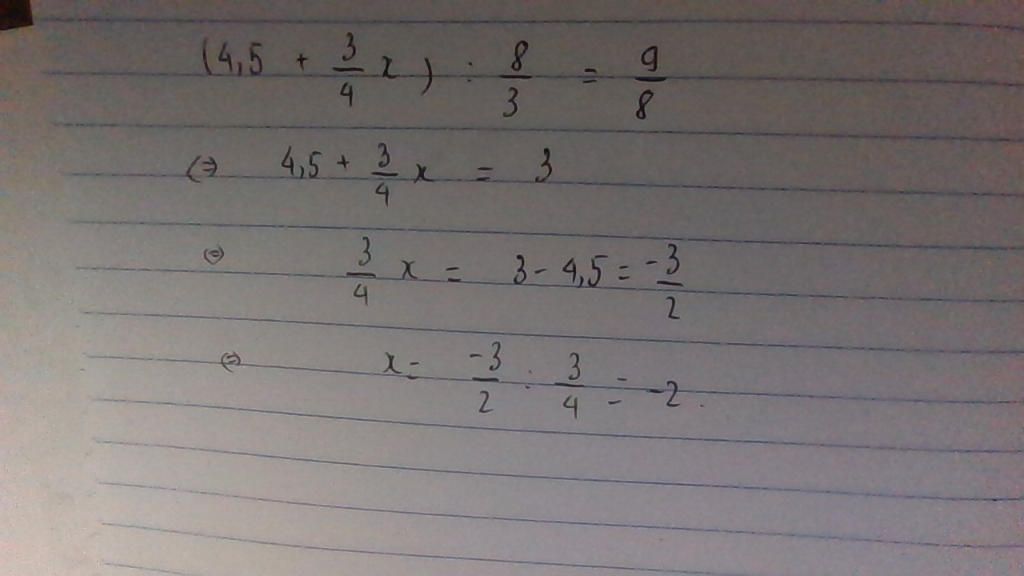 (4,5 + 3/4 x) : 8/3 = 9/8
(=) 4,5 + 3/4 x = 3
(=) 3/4 x = 3 - 4,5 = -3/2
(=) x = -3/2 : 3/4 = -2.